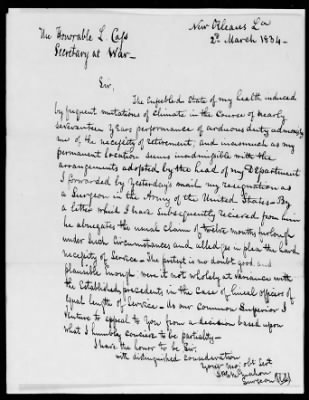 New Orleans La
2d March 1834-
The Honorable L. Cass
Secretary at War-
Sir,
The Enfeebled State of my health induced
by frequent mutations of climate in the Course of nearly
seventeen Years performance of arduous duty admonishes
me of the necessity of retirement, and inasmuch as my
permanent location seems inadmissible with the
arrangements adopted by the head of my Department
I forwarded by Yesterday's mail my resignation as
a Surgeon in the Army of the United States - By
a letter which I have subsequently recieved from him
he abrogates the usual claim of twelve months furlough
under such Circumstances and alledges in plea the hard
necessity of Service - The pretext is no doubt good and
plausible enough were it not wholely at variance with
the Established precedents in the case of lineal officers of
equal length of Service - As our Common Superior I
venture to appeal to You from a decision based upon
what I humbly concieve to be partiality -
I have the honor to be Sir,
with distinguished consideration
Your Mo: obt Svt
Surgeon